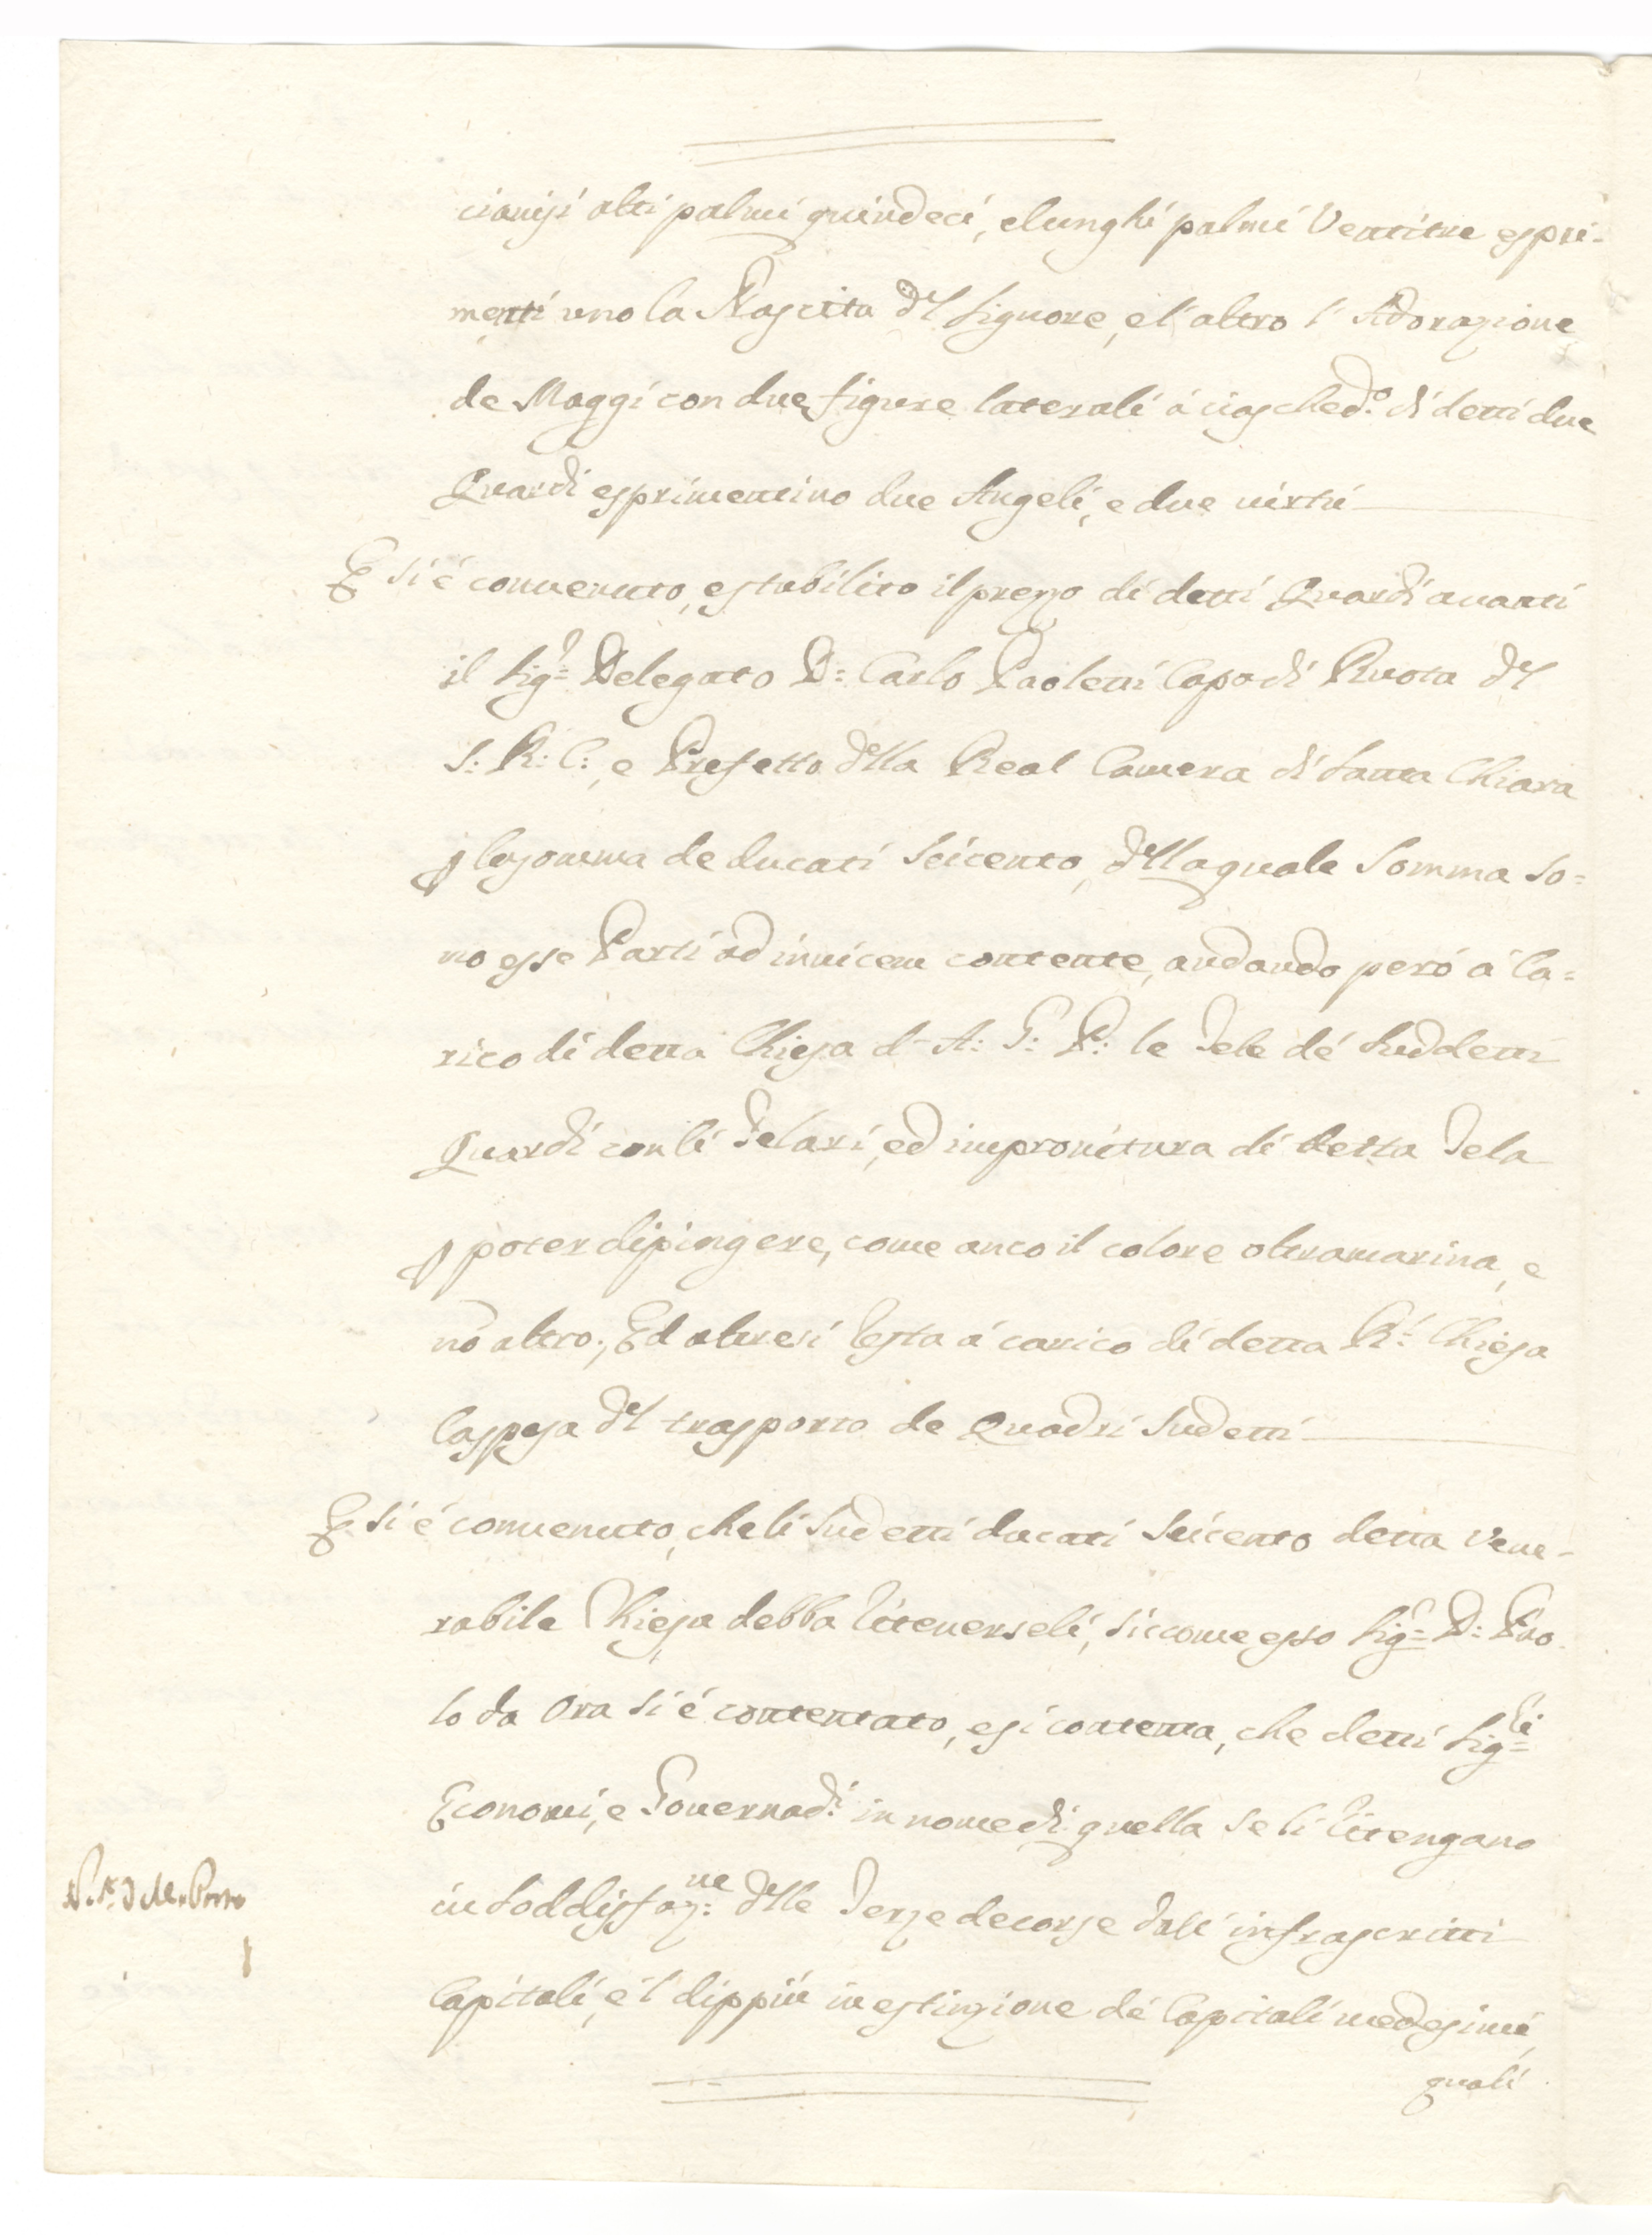 cianisi alti palmi quindeci, e lunghi palmi Ventitre espri-
menti uno la Nascita del Signore, e l'altro l'Adorazione
de Maggi con due figure laterali á ciasched.º di detti due
Quardi esprimentino due Angeli, e due virtú
E si é convenuto, e stabilito il prezzo di detti Quardi avanti
il Sig.r Delegato D: Carlo Paoletti Capo di Ruota del
S: R: C:, e Prefetto della Real Camera di Santa Chiara
p la somma de ducati Seicento, della quale Somma so=
no esse Parti ad invicem contente, andando peró á Ca=
rico di detta Chiesa d'A: G: P: le Tele dé Suddetti
Quardi con li Telari, ed impronitura di detta Tela
p poter dipingere, come anco il colore oltramarina, e
nō altro; Ed altresí resta á carico di detta R.l Chiesa
la spesa del trasporto de Quadri Sudetti
E si é convenuto, che li Sudetti ducati Seicento detta Vene-
rabile Chiesa debba ritenerseli, siccome esso Sig.r D: Pao-
lo da Ora si é contentato, e si contenta, che detti Sig.ri
Economi, e Governad.i in nome di quella se li ritengano
in Soddisfaz.ne delle Terze decorse dalí infrascritti
Capitali, é l' dippiú in estinzione dé Capitali medesimi,
quali